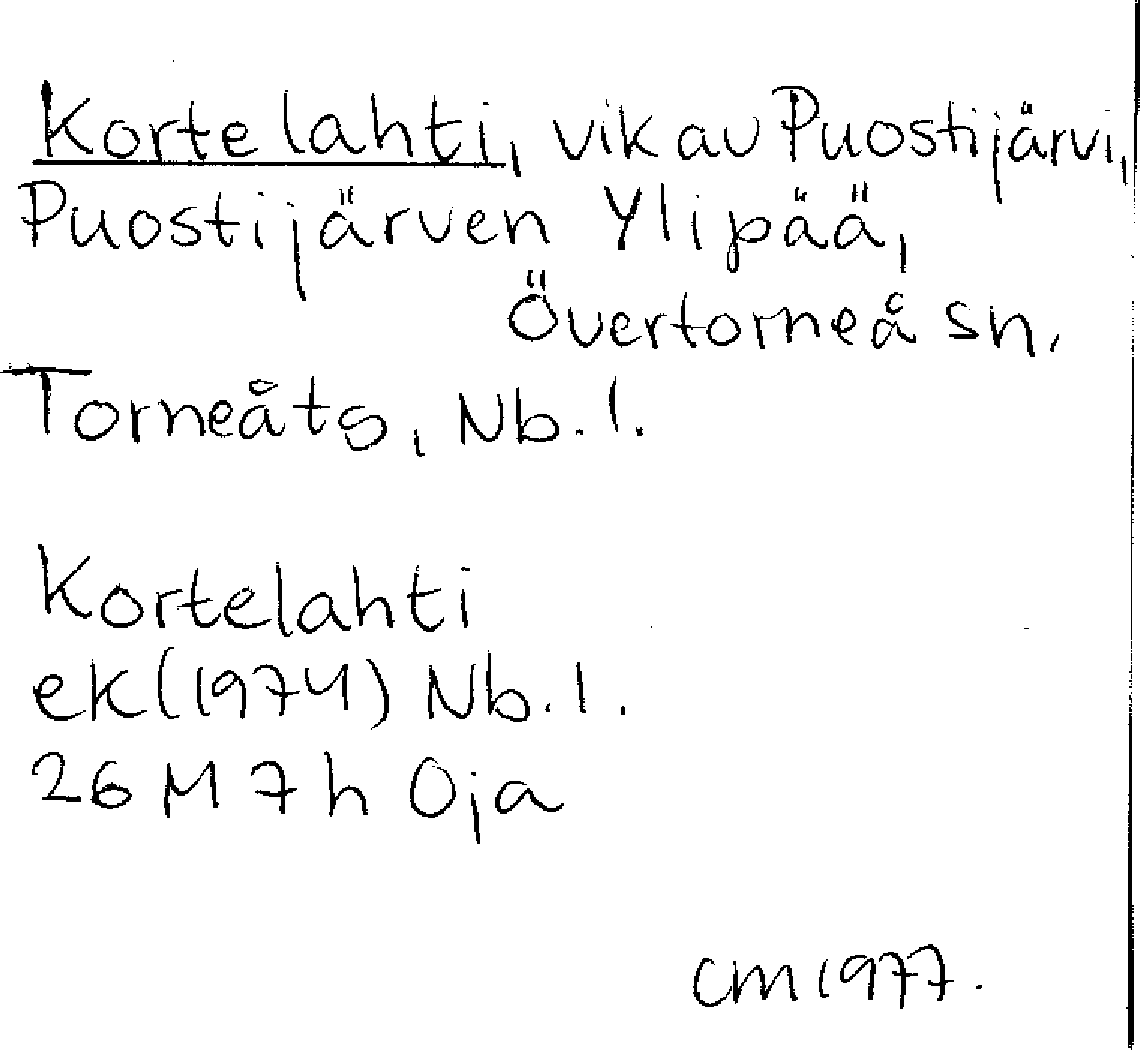 Kortelahti, vik av Puostijärvi,
Puostijärven Ylipää,
Övertorneå sn.
Torneåts, Nb. l.
Kortelahti
ek (1974) Nb. l.
26 M 7 h Oja
CM 1977.